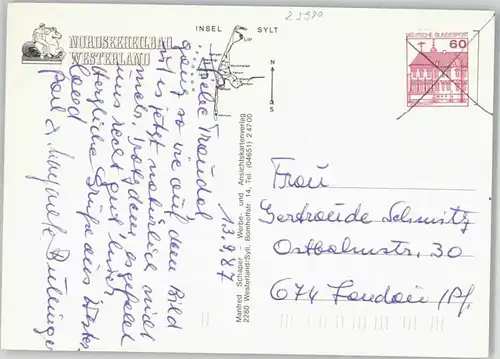 NORDSEEHEILBAD
WESTERLAND
INSEL SYLT
N
S
25580
DEUTSCHE BUNDESPOST
60
13.9.87
Liebe Traudel
ganz so wie auf dem Bild
ist es jetzt natürlich nicht
mehr, trotzdem gefällt
uns recht gut hier.
Herzliche Grüße aus Wester-
land
Paul u. Margarete
Manfred Schaper - Werbe- und Ansichtskartenverlag
2280 Westerland/Sylt, Bomhoffstr. 14, Tel. (04651) 24700
Frau
Gertraude Schmitz
Ostbahnstr. 30
674 Landau/Pf.